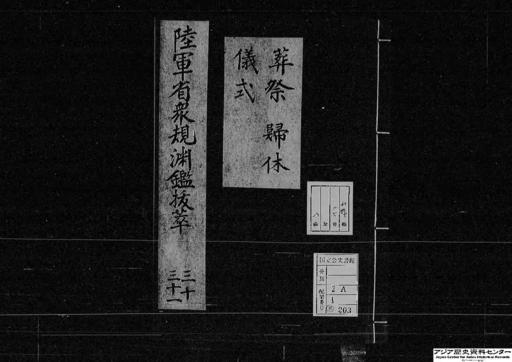 葬祭 歸休
儀式
陸軍省衆規淵鑑抜萃
三十
三十一
国立公文書館
分類
配架番号
2 A
1
203
アジア歴史資料センター
Japan Center for Asian Historical Records